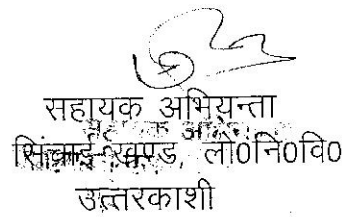 सहायक अभियन्ता
सिंचाई खण्ड, लो0नि0वि0
उत्तरकाशी